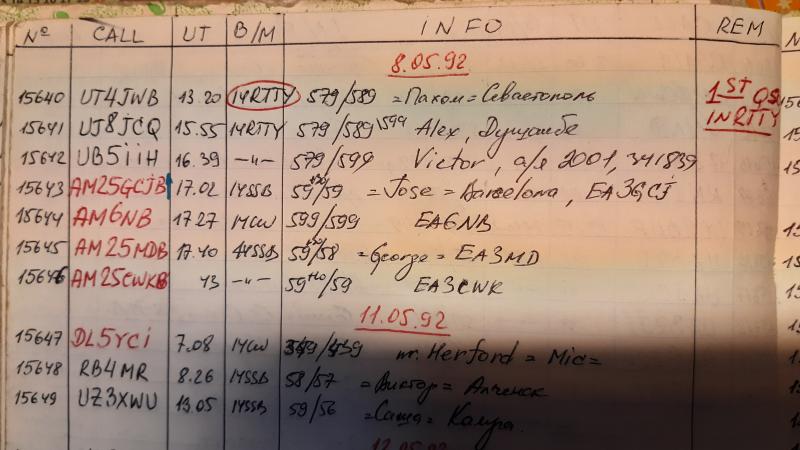 № CALL UT B/M INFO REM
8.05.92
15640 UT4JWB 13.20 14RTTY 579/589 =Пахом=Севастополь 1ST QSO
15641 UJ8JCQ 15.55 14RTTY 579/589 1599 Alex, Душанбе IN RTTY
15642 UB5iiH 16.39 -"- 579/599 Victor, а/я 2001, 341839
15643 AM25GCJB 17.02 14SSB 59/59 =Jose=Barcelona, EA3GCJ
15644 AM6NB 17.27 14CW 599/599 EA6NB
15645 AM25MDB 17.40 14SSB 59/58 =George=EA3MD
15646 AM25CWKB 43 -"- 59+10/59 EA3CWK
11.05.92
15647 DL5YCi 7.08 14CW nr. Herford = Mic=
15648 RB4MR 8.26 14SSB 58/57 =Виктор=Алченск
15649 UZ3XWU 13.05 14SSB 59/56 =Саша=Калуга.